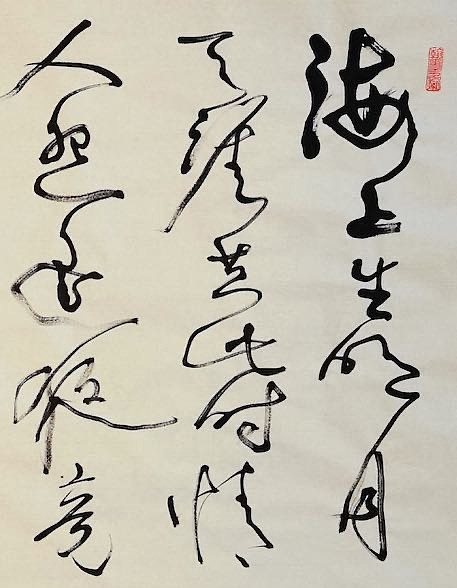 海上生明月
天涯共此时情
人怨遥夜竟